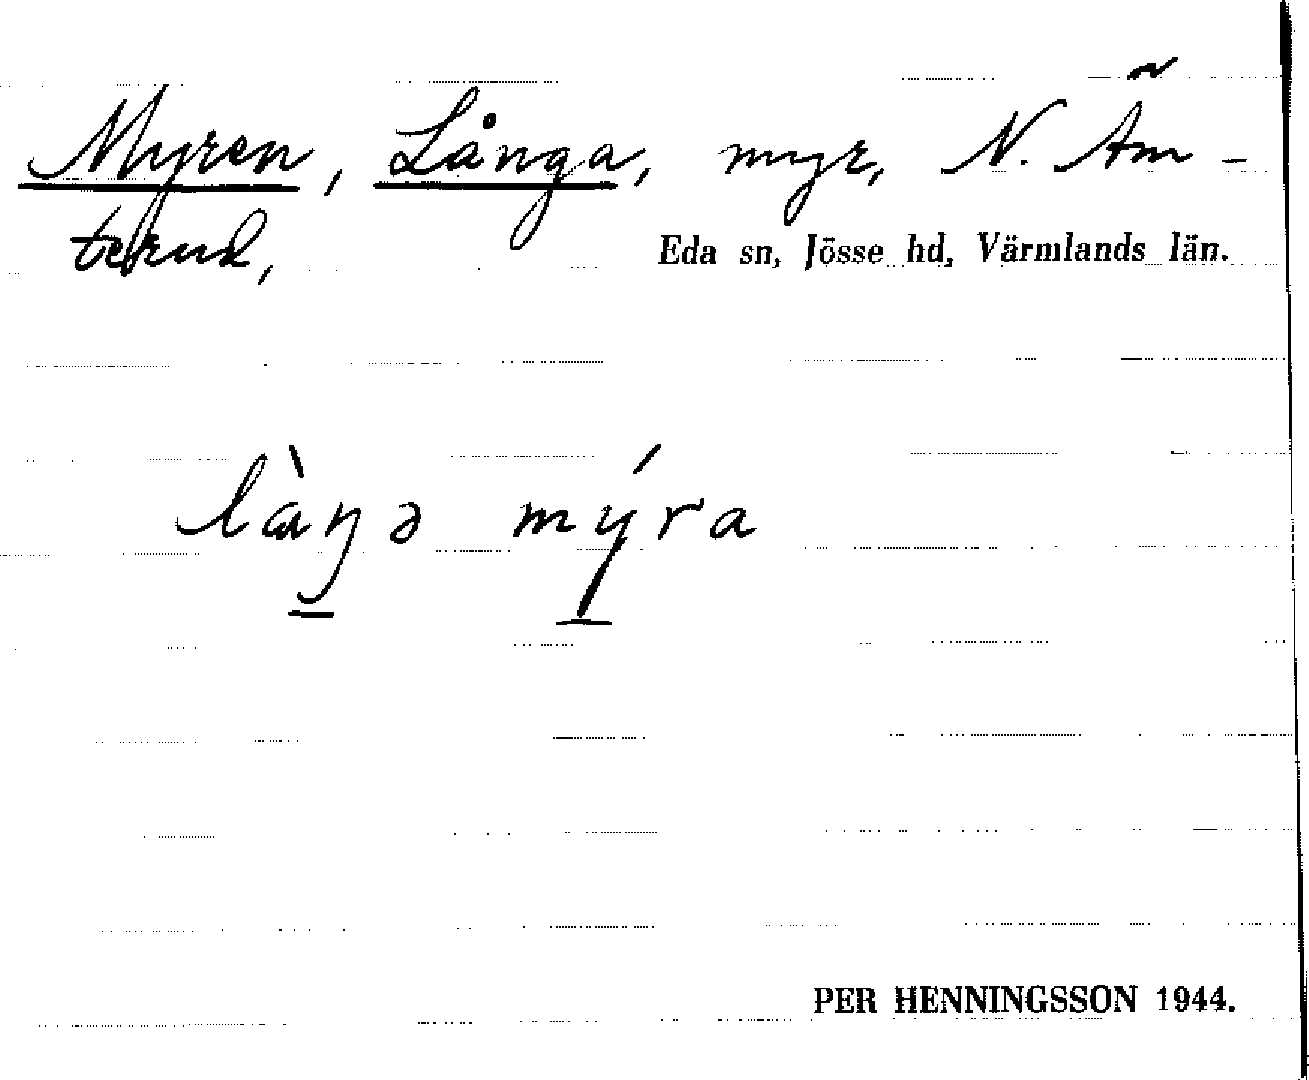 Myren, Långa, myr, N. Äm-
terud,
Eda sn, Jösse hd, Värmlands län.
là̱ŋə mý̱ra
PER HENNINGSSON 1944.